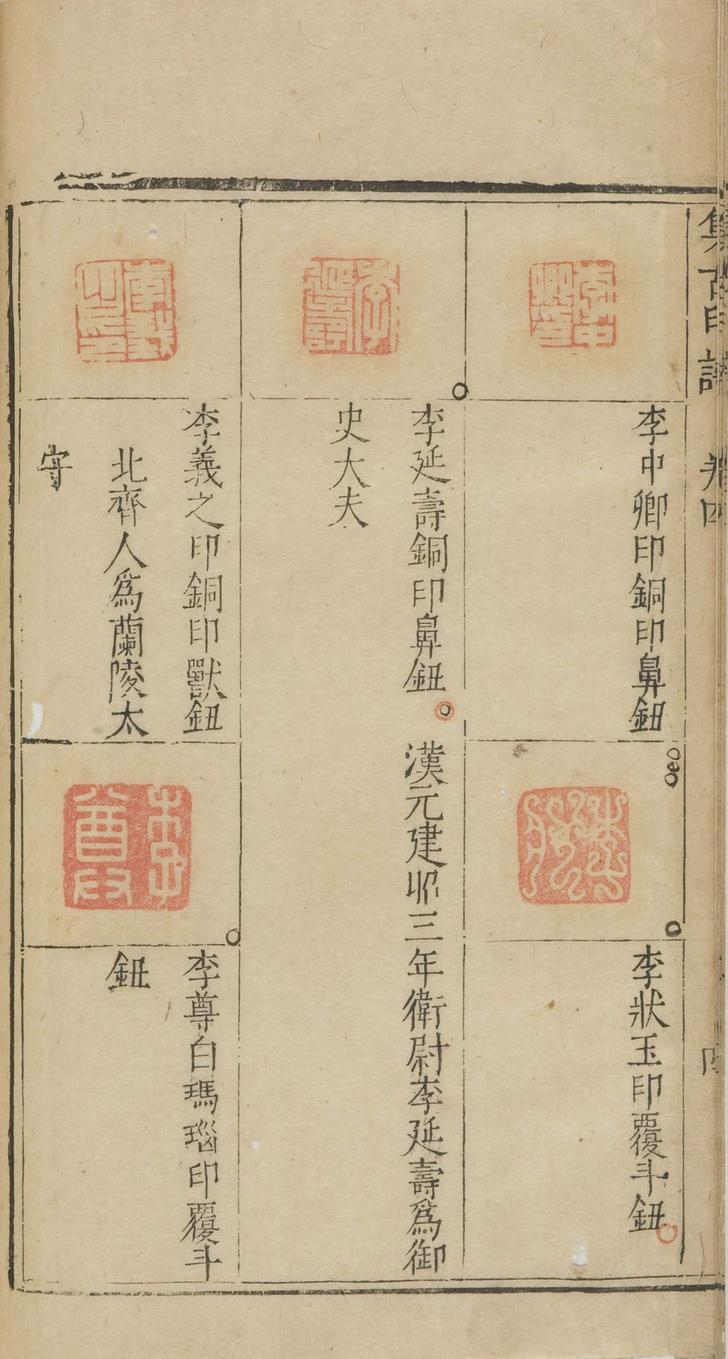 集古印譜 卷四
李中卿印銅印鼻鈕
李狀玉印覆斗鈕
李延壽銅印鼻鈕 漢元建昭三年衛尉李延壽爲御
史大夫
李義之印銅印獸鈕
北齊人爲蘭陵太
守
李尊白瑪瑙印覆斗
鈕